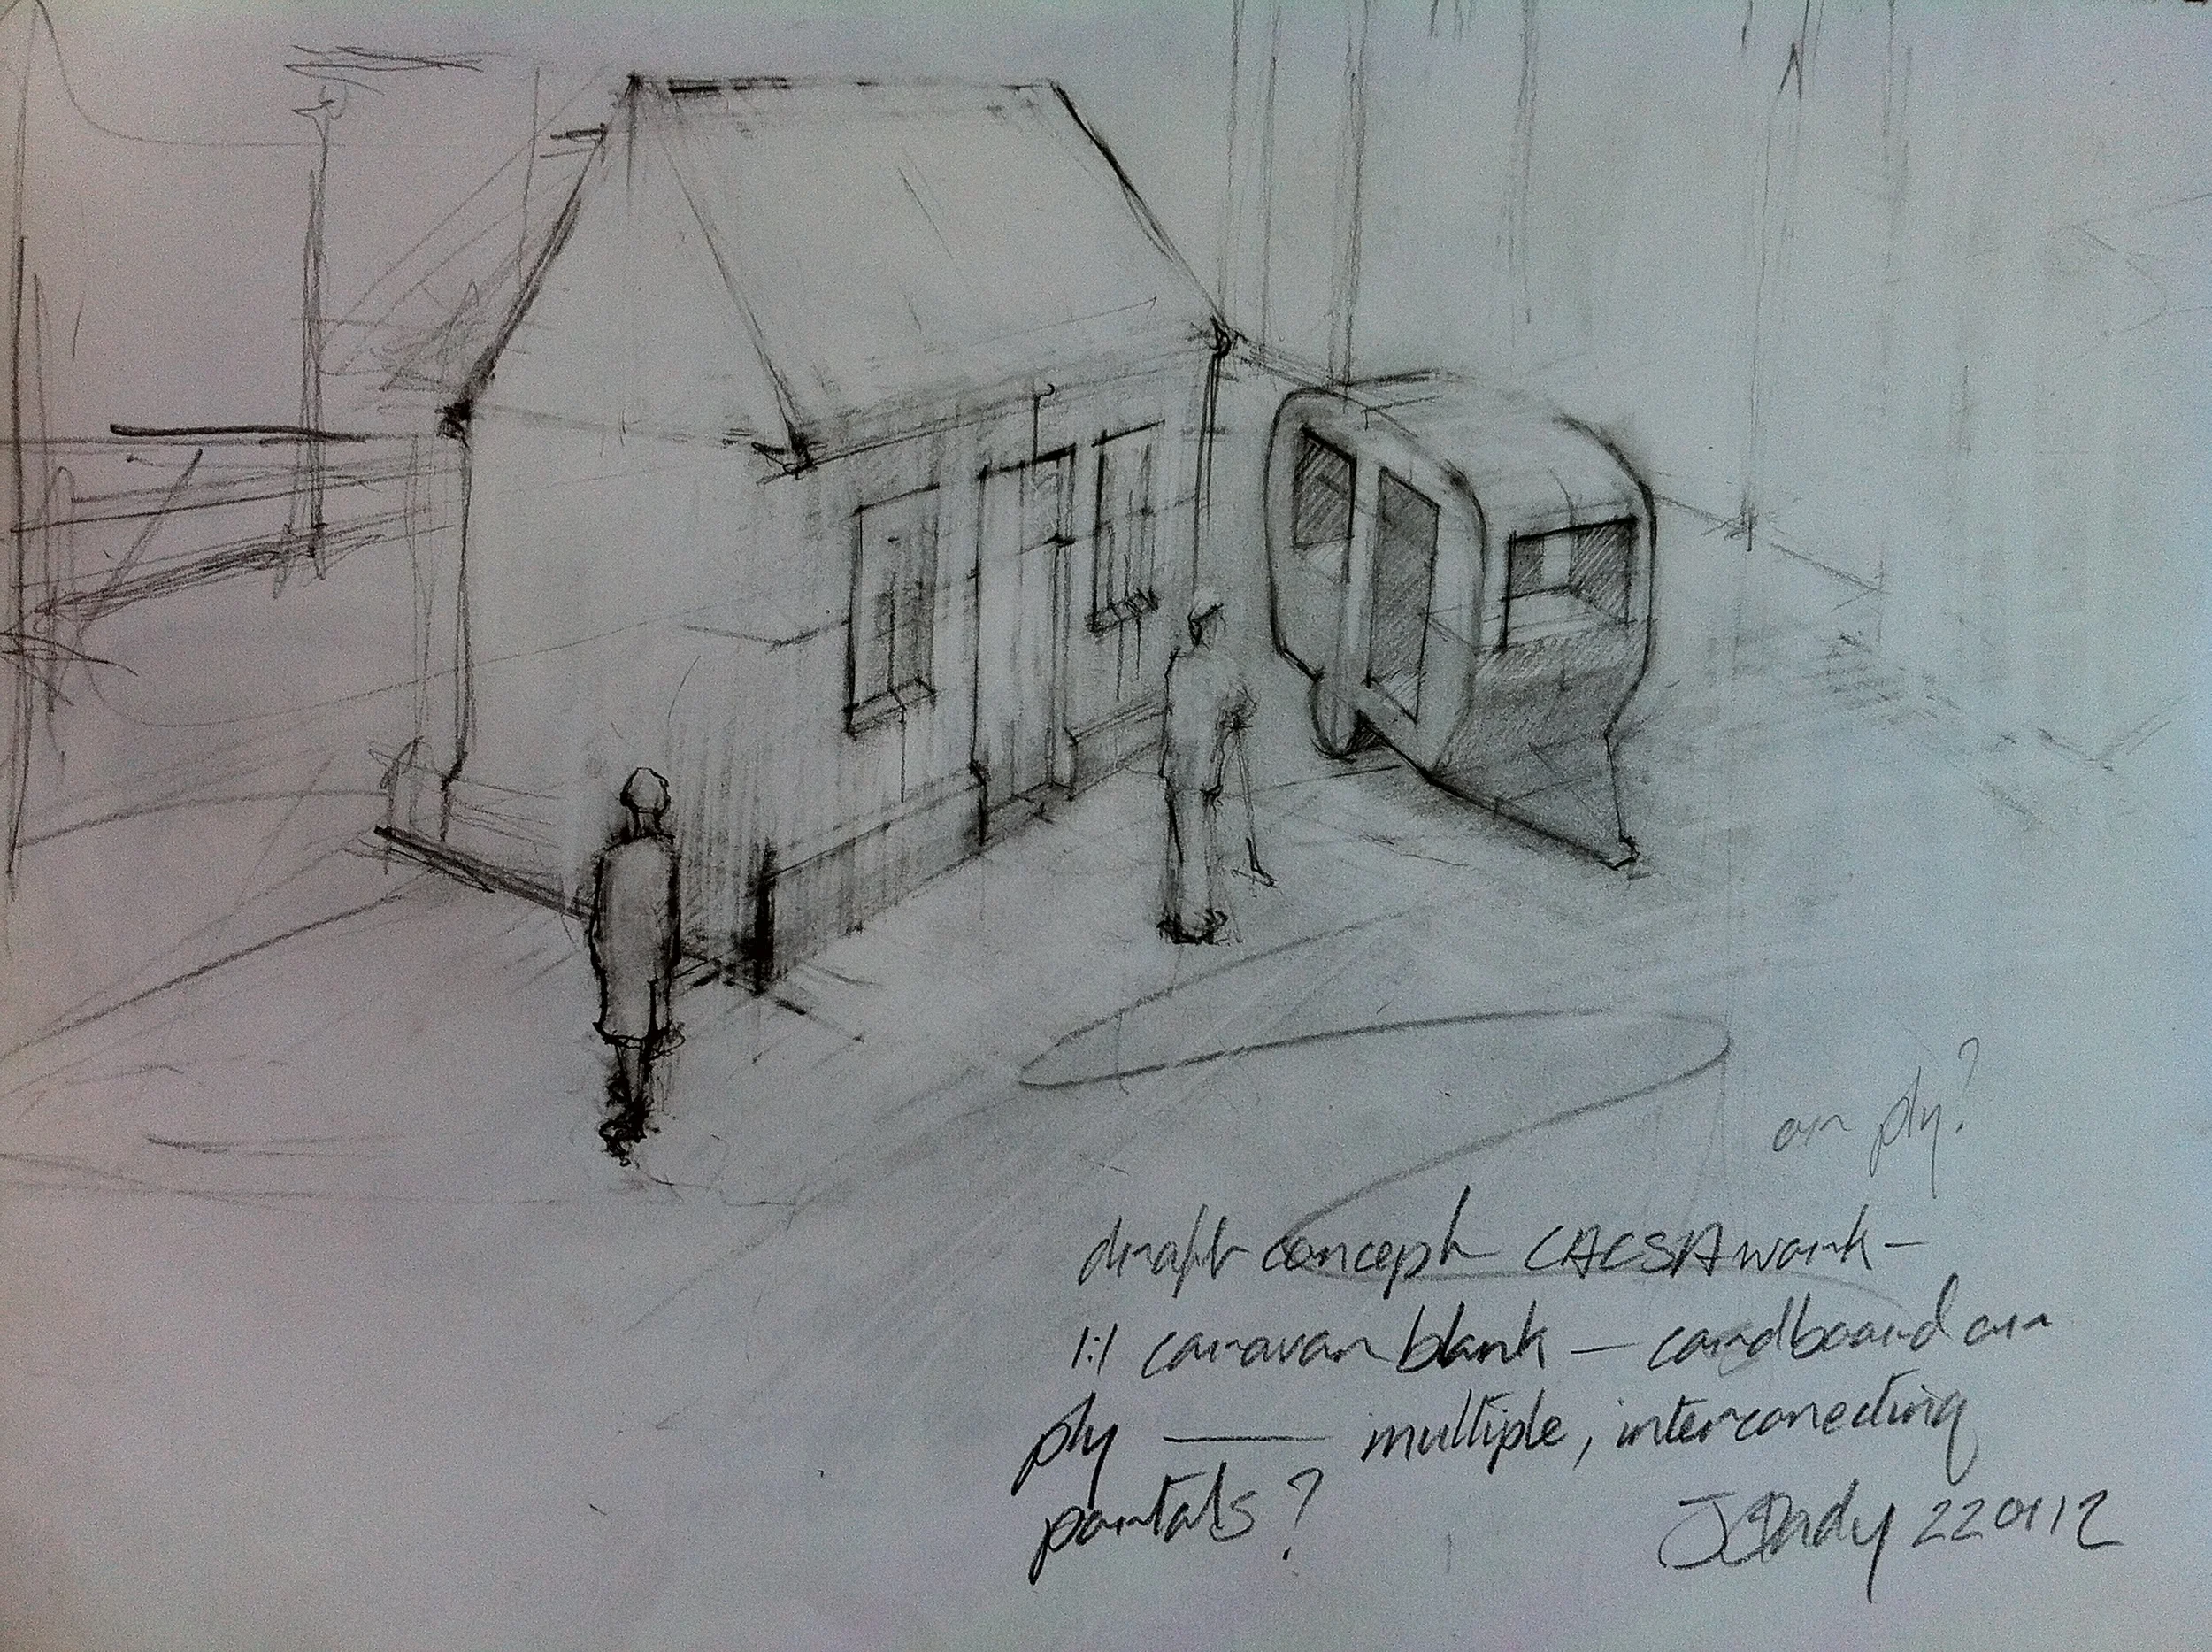 on ply?
draft concept CACSA work –
1:1 caravan blank – cardboard on
ply — multiple, interconecting
portals?
J Dady 220112